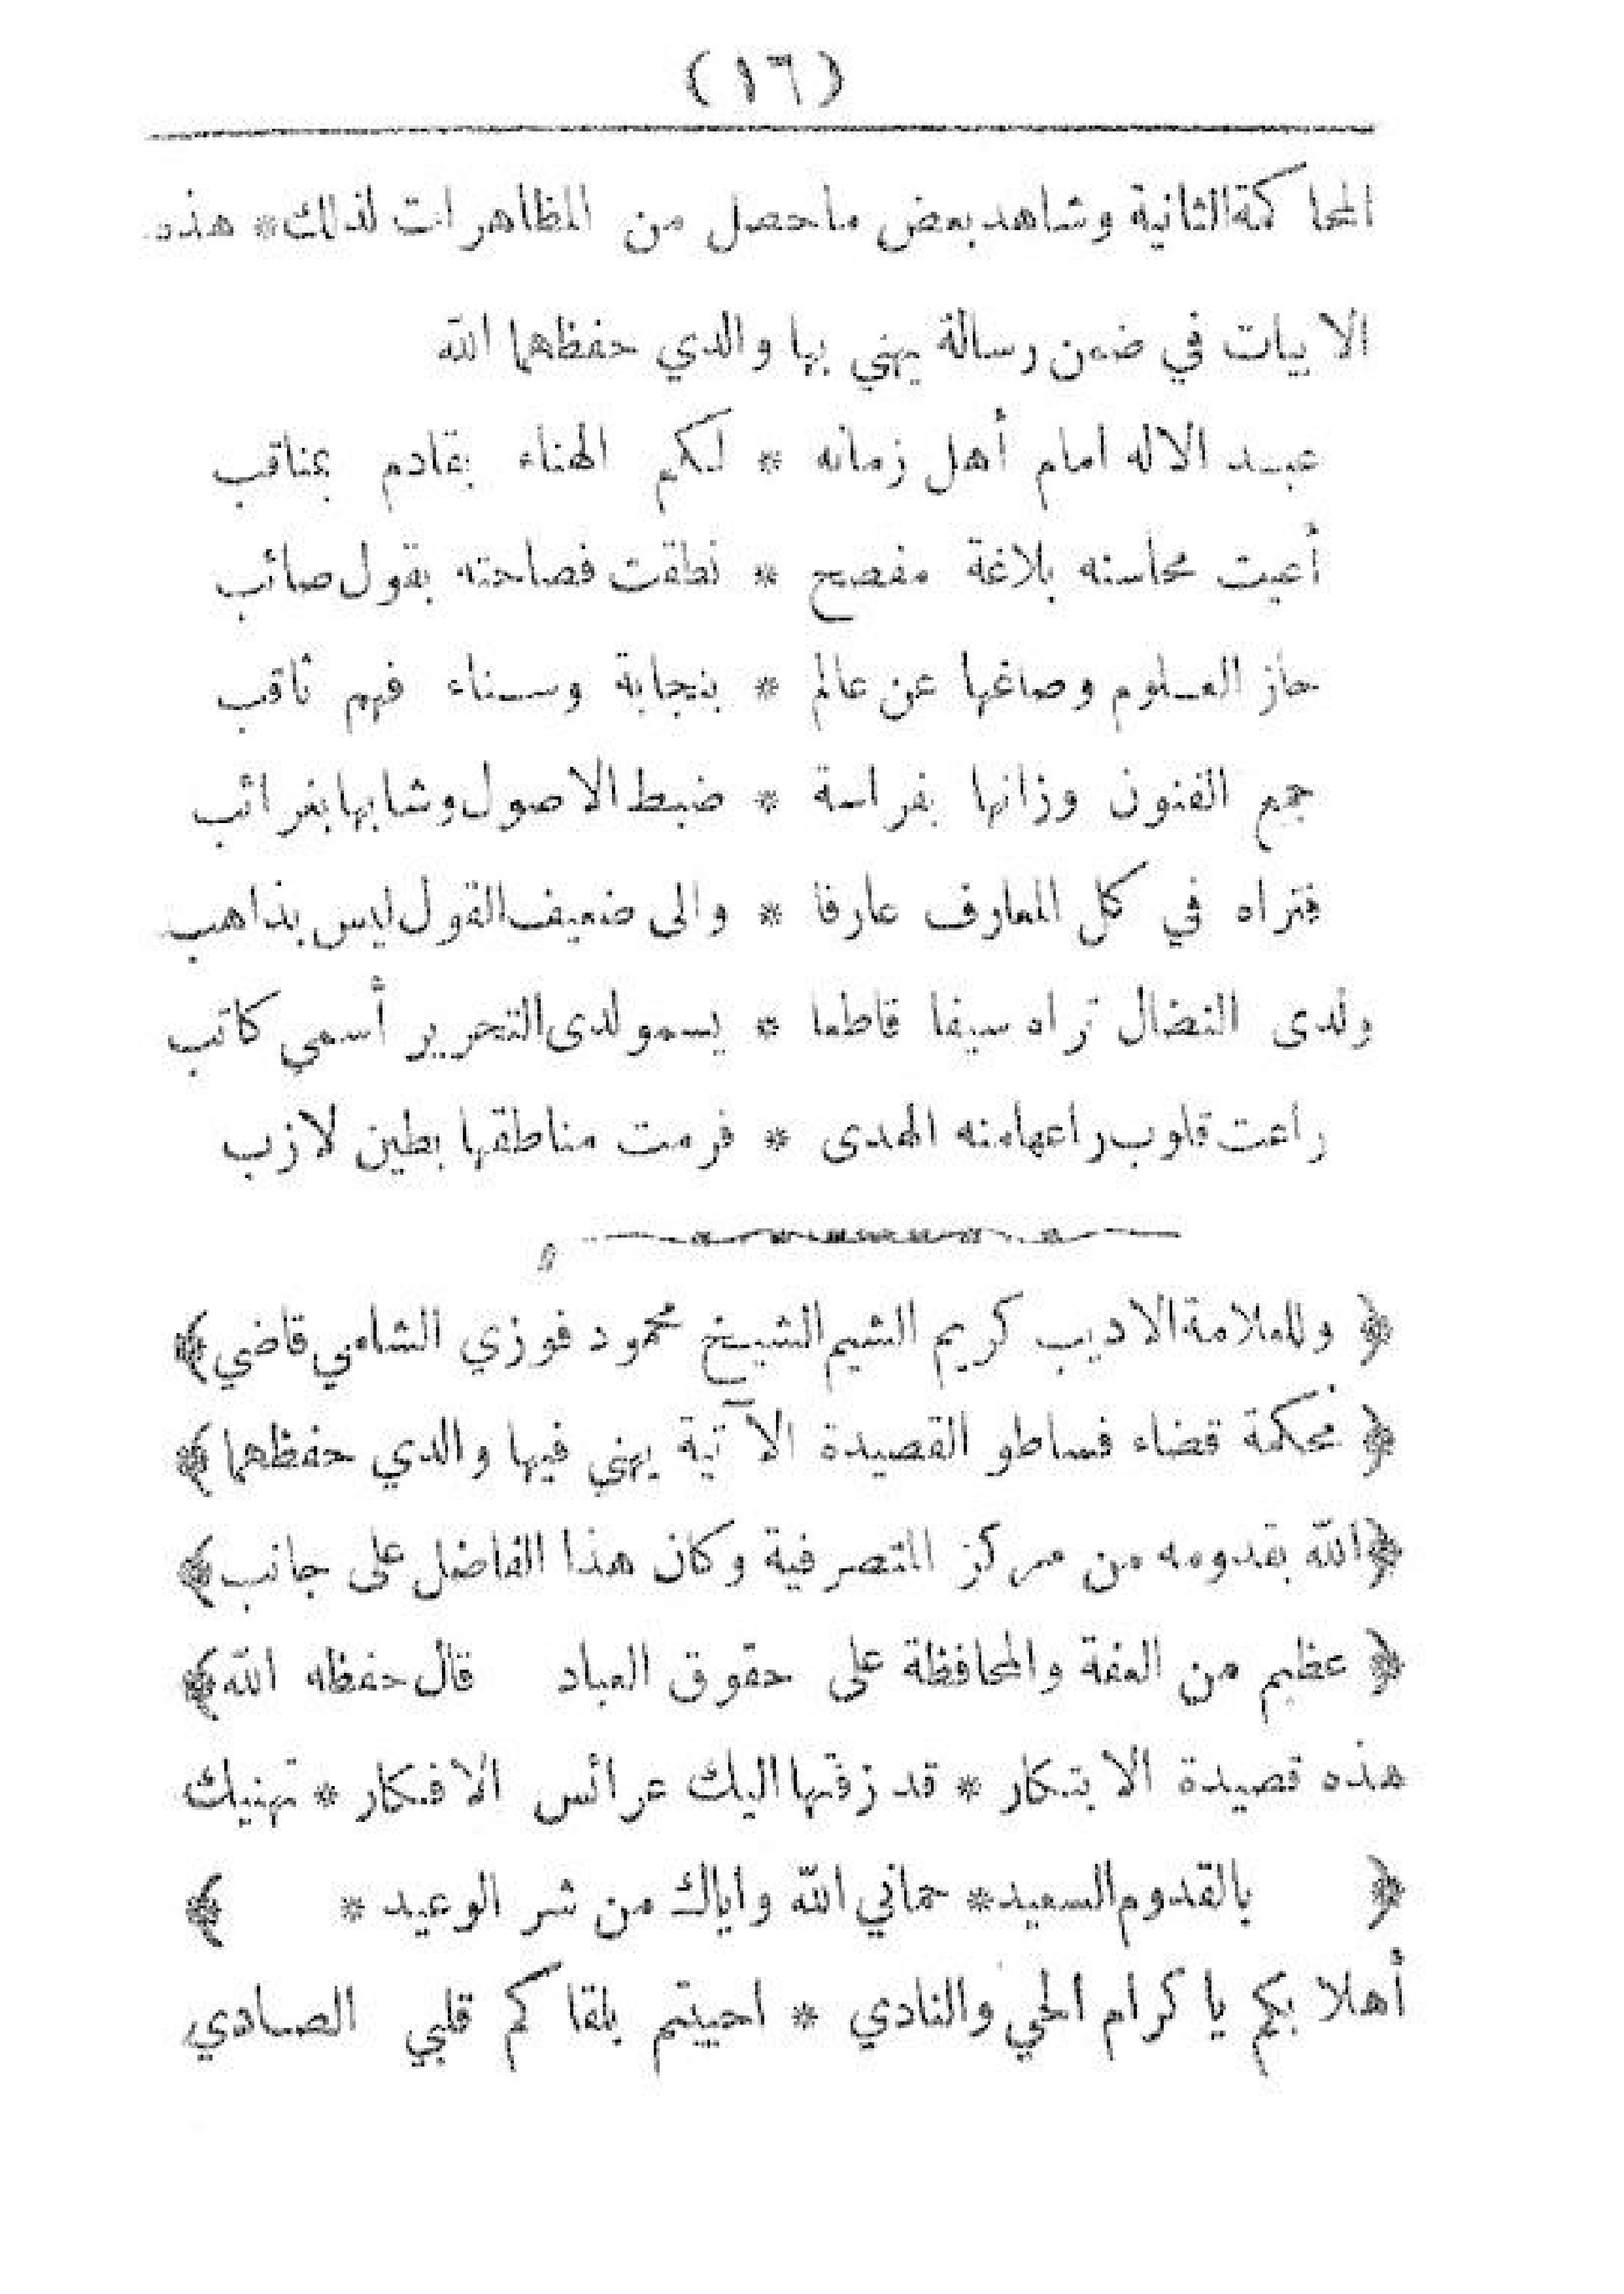 (١٦)
المحاكمة الثانية وشاهد بعض ما حصل من المظاهرات لذلك * هذه
الابيات في ضمن رسالة يهني بها والدي حفظهما الله
عبد الاله امام أهل زمانه * لكم الهناء بقادم بمناقب
أعيت محاسنه بلاغة مفصح * نطقت فصاحته بقول صائب
حاز العلوم وصاغها عن عالم * بنجابة وسناء فهم ثاقب
جمع الفنون وزانها بفراسة * ضبط الاصول وشابها بغرائب
فتراه في كل المعارف عارفا * والى ضعيف القول ليس بذاهب
ولدى النضال تراه سيفا قاطعا * يسمو لدى التحرير أسمى كاتب
راعت قلوب راعها منه الهدى * فرمت مناطقها بطين لازب
﴿ وللعلامة الاديب كريم الشيم الشيخ محمود فوزي الشامي قاضي ﴾
﴿ محكمة قضاء فساطو القصيدة الآتية يهني فيها والدي حفظهما ﴾
﴿ الله بقدومه من مركز المتصرفية وكان هذا الفاضل على جانب ﴾
﴿ عظيم من العفة والمحافظة على حقوق العباد قال حفظه الله ﴾
هذه قصيدة الابتكار * قد زفتها اليك عرائس الافكار * تهنيك
﴿ بالقدوم السعيد * حماني الله واياك من شر الوعيد * ﴾
أهلا بكم يا كرام الحي والنادي * احييتم بلقاكم قلبي الصادي